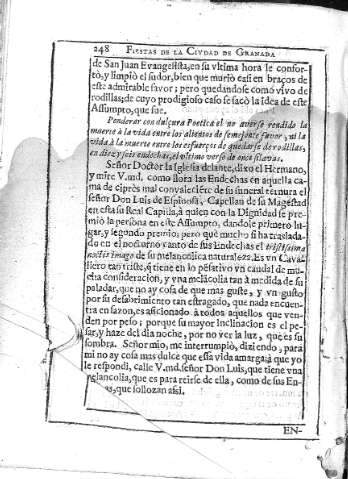 248 FIESTAS DE LA CIVDAD DE GRANADA
de San Juan Evangelista, en su vltima hora le confor-
tò, y limpiò el sudor, bien que muriò casi en braços de
este admirable favor; pero quedandose como vivo de
rodillas; de cuyo prodigioso caso se sacò la idea de este
Assumpto, que fue.
Ponderar con dulçura Poetica el no averse rendido la
muerte à la vida entre los alientos de semejante favor, ni la
vida à la muerte entre los esfuerços de quedarse de rodillas,
en diez y seis endechas, el vltimo verso de once silavas.
Señor Doctor la Iglesia delante, dixo el Hermano,
y mire V.md. como llora las Endechas en aquella
cama de ciprès mal convaleciẽte de su funeral ternura el
señor Don Luis de Espinosa, Capellan de su Magestad
en esta su Real Capilla, à quien con la Dignidad se pre-
miò la persona en este Assumpto, dandole primero lu-
gar, y segundo premio; pero què mucho si ha traslada-
do en el nocturno canto de sus Endechas el tristissima
noctis imago de su melancolica naturaleza. Es vn Cava-
llero tan triste, q̃ tiene en lo pẽsativo vn caudal de mu-
cha consideracion, y vna melãcolia tan à medida de su
paladar, que no ay cosa de que mas guste, y vn gusto
por su desabrimiento tan estragado, que nada encuen-
tra en sazon, es aficionado à todos aquellos que ven-
den por peso; porque su mayor inclinacion es el pe-
sar, y haze del dia noche, por no ver la luz, que es su
sombra. Señor mio, me interrumpiò, diziendo, para
mi no ay cosa mas dulce que essa vida amarga; à que yo
le respondi, calle V.md. señor Don Luis, que tiene vna
melancolia, que es para reirse de ella, como de sus En-
que sollozan assi.
EN-